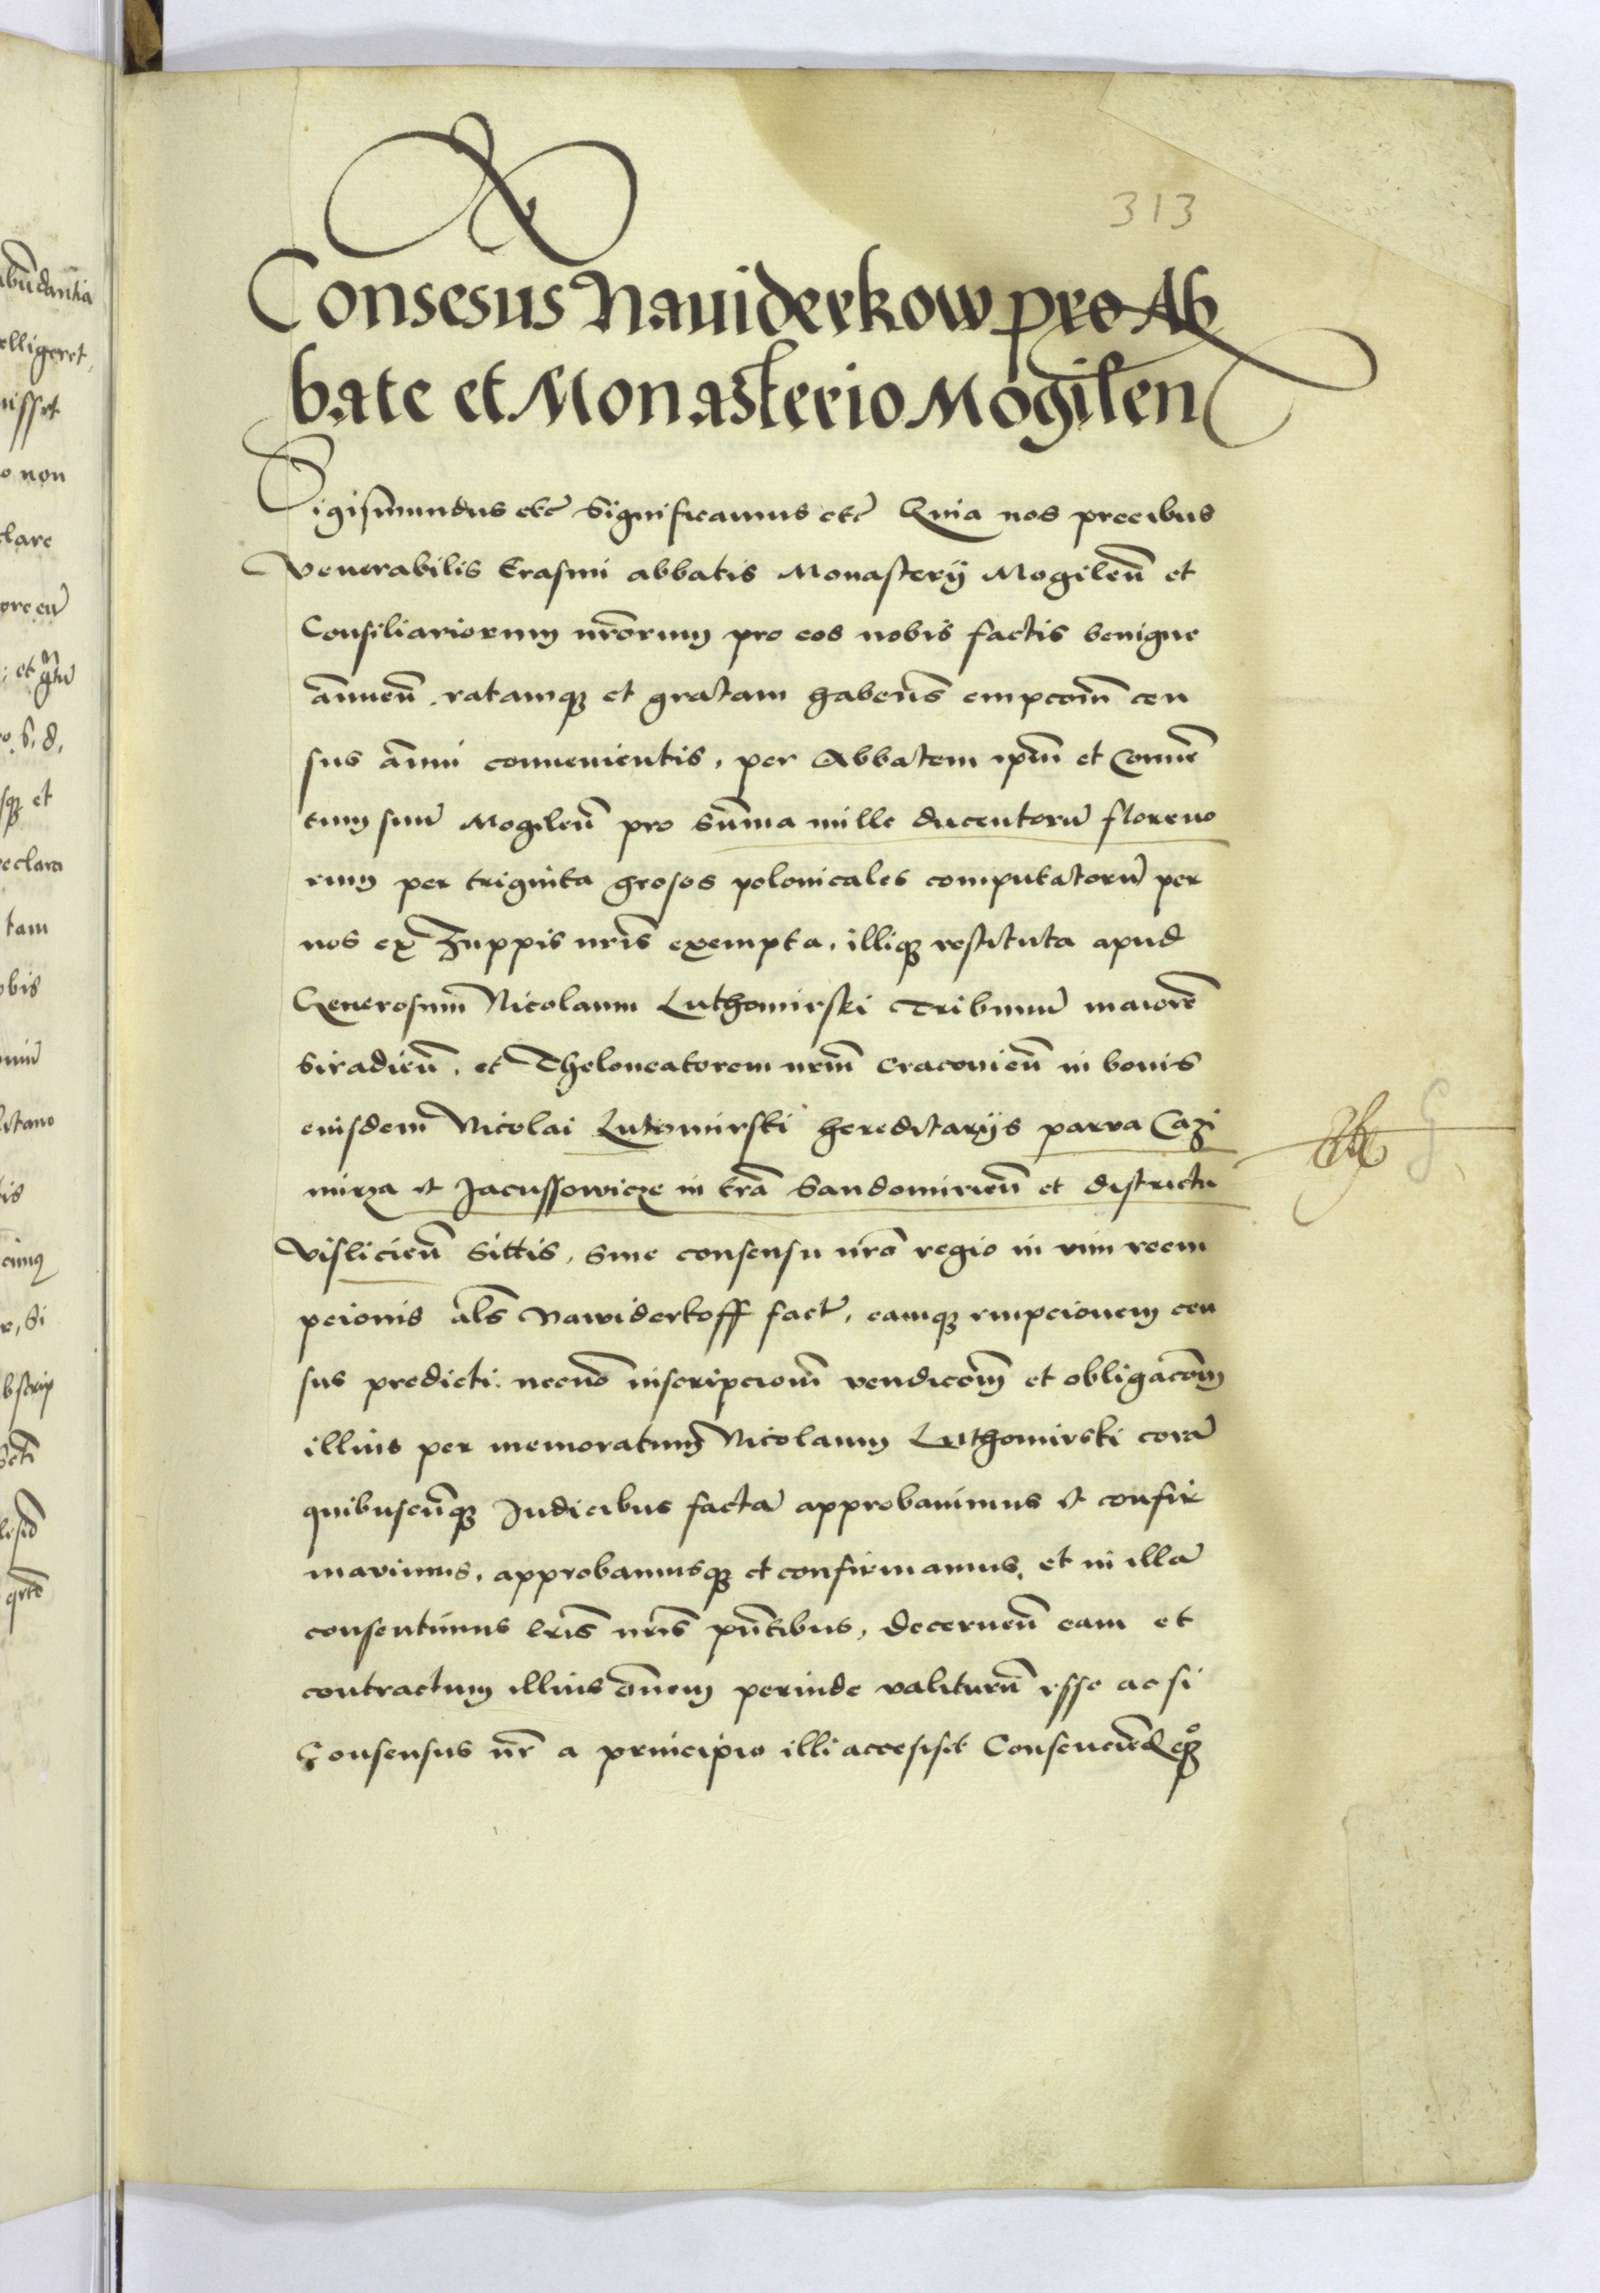 313
Consesus Nauiderkow pro Ab
bate et Monasterio Mogilen
Sigismundus etc̄ Significamus etc̄ Quia nos precibus
Venerabilis Erasmi abbatis Monasterÿ Mogilen̄ et
Consiliariorum nr̄orum pro eos nobis factis benigne
an̄uen̄ . ratamq3 et gratam haben̄s empcōm̄ cen
sus an̄ui conuenientis , per Abbatem ip̄m̄ et Conuē
tum suū Mogilen̄ pro sūma mille ducentorū floreno
rum per triginta grosos polonicales computatorū per
nos ex Zuppis nr̄is exempta , illiq3 restituta apud
Generosum Nicolaum Luthomirski Tribunū maiorē
Siradien̄ , et Theloneatorem nr̄m̄ Cracouien̄ in bonis
eiusdem Nicolai Lutomirski hereditarÿs parua Cazi
mirza et Jacussowicze in tr̄a Sandomirien̄ et districtu
Vislicien̄ Sittis , Sine consensu nr̄o regio in vim reem
pcionis al̄s Nawiderkoff factā , eamq3 empcionem cen
sus predicti . necnō inscripcionē vendicōm̄ et obligacōm̄
illius per memoratum Nicolaum Luthomirski corā
quibuscun̄q3 Judicibus factā approbauimus et confir
mauimus , approbamusq3 et confirmamus , et in illā
consentimus lr̄is nr̄is pn̄tibus , decernen̄ eam et
contractum illius om̄nem perinde valiturū esse ac si
Consensus nr̄ a principio illi accesisset